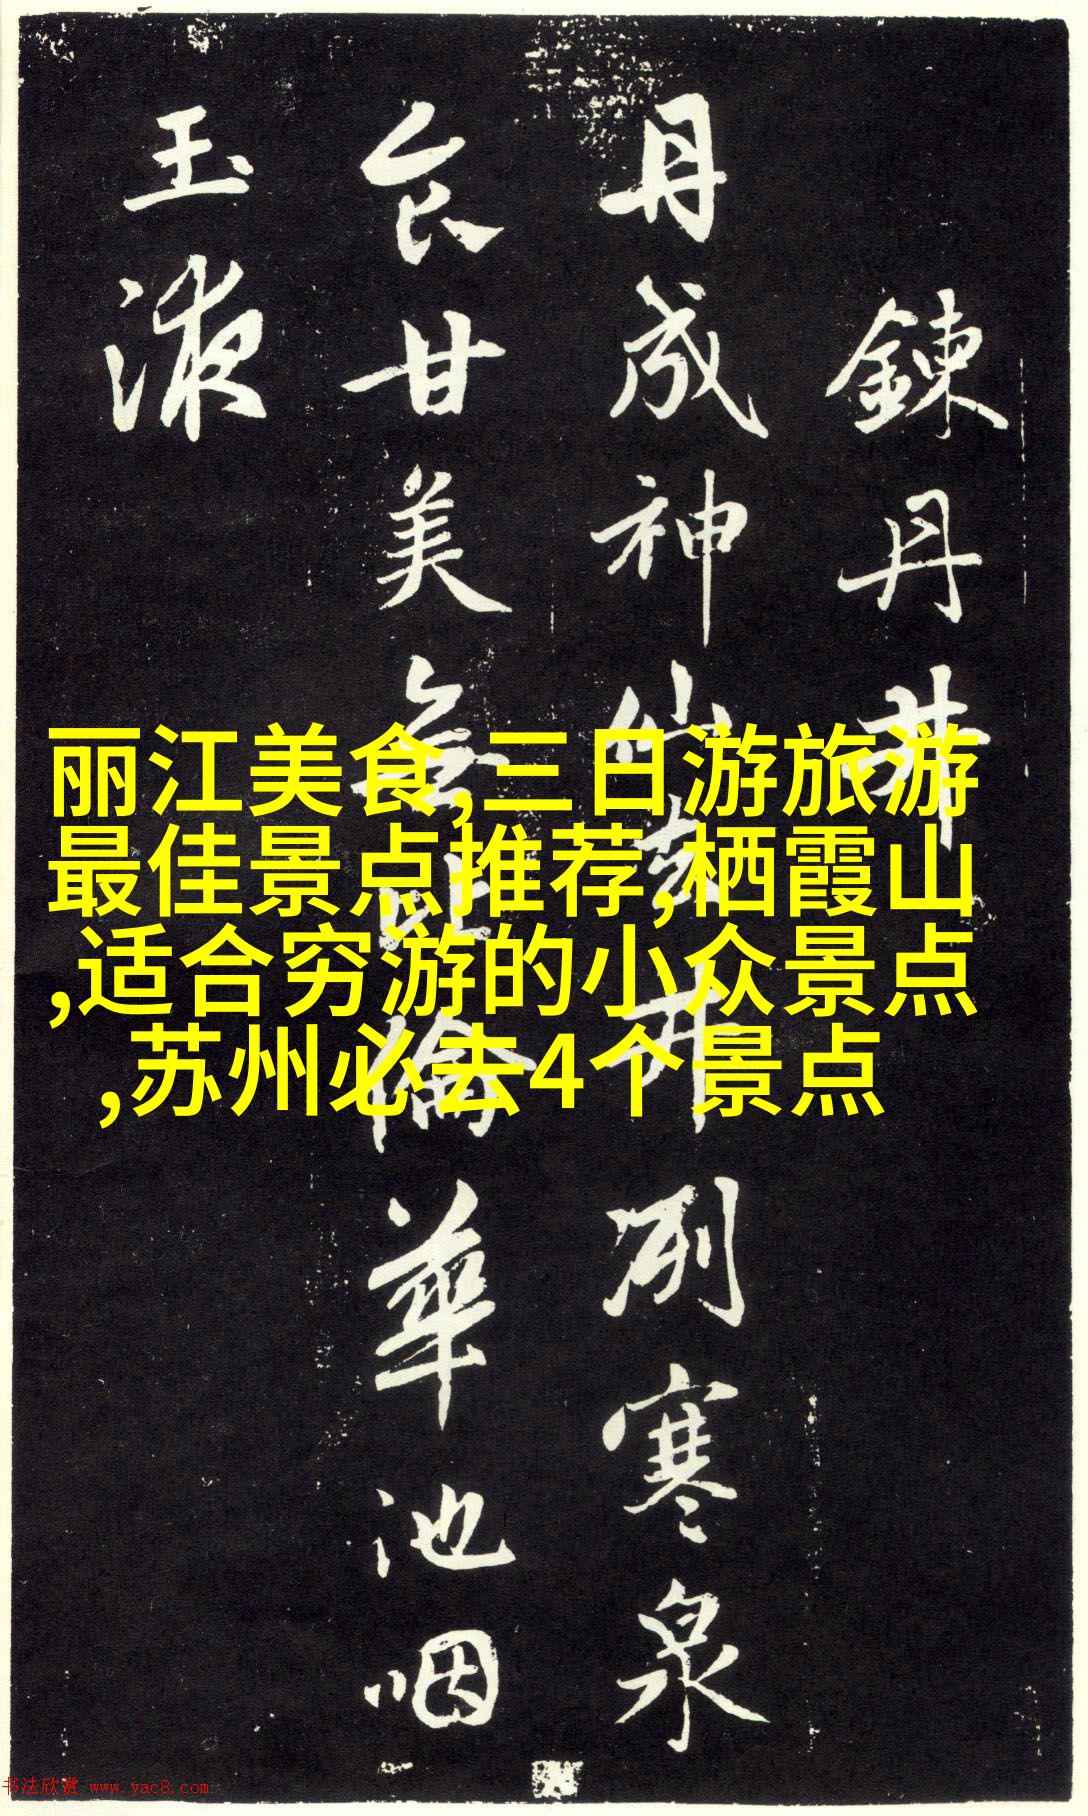 丽江美食,三日游旅游
最佳景点推荐,栖霞山
,适合穷游的小众景点
,苏州必去4个景点
鍊丹井
丹成神仙去井冽寒泉
食甘美無比倫華池咽
玉液
书法欣赏 www.yac8.com